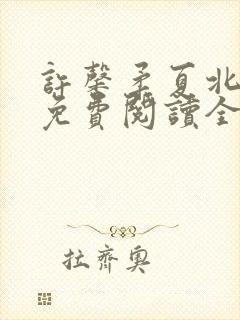 許馨矛夏北
免費閱讀全
拉齊奧